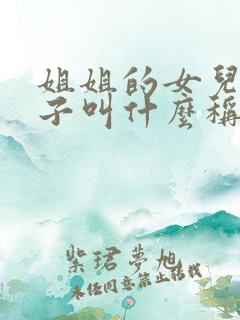 姐姐的女兒
子叫什麼稱
紫珺夢旭
未經同意禁止轉載